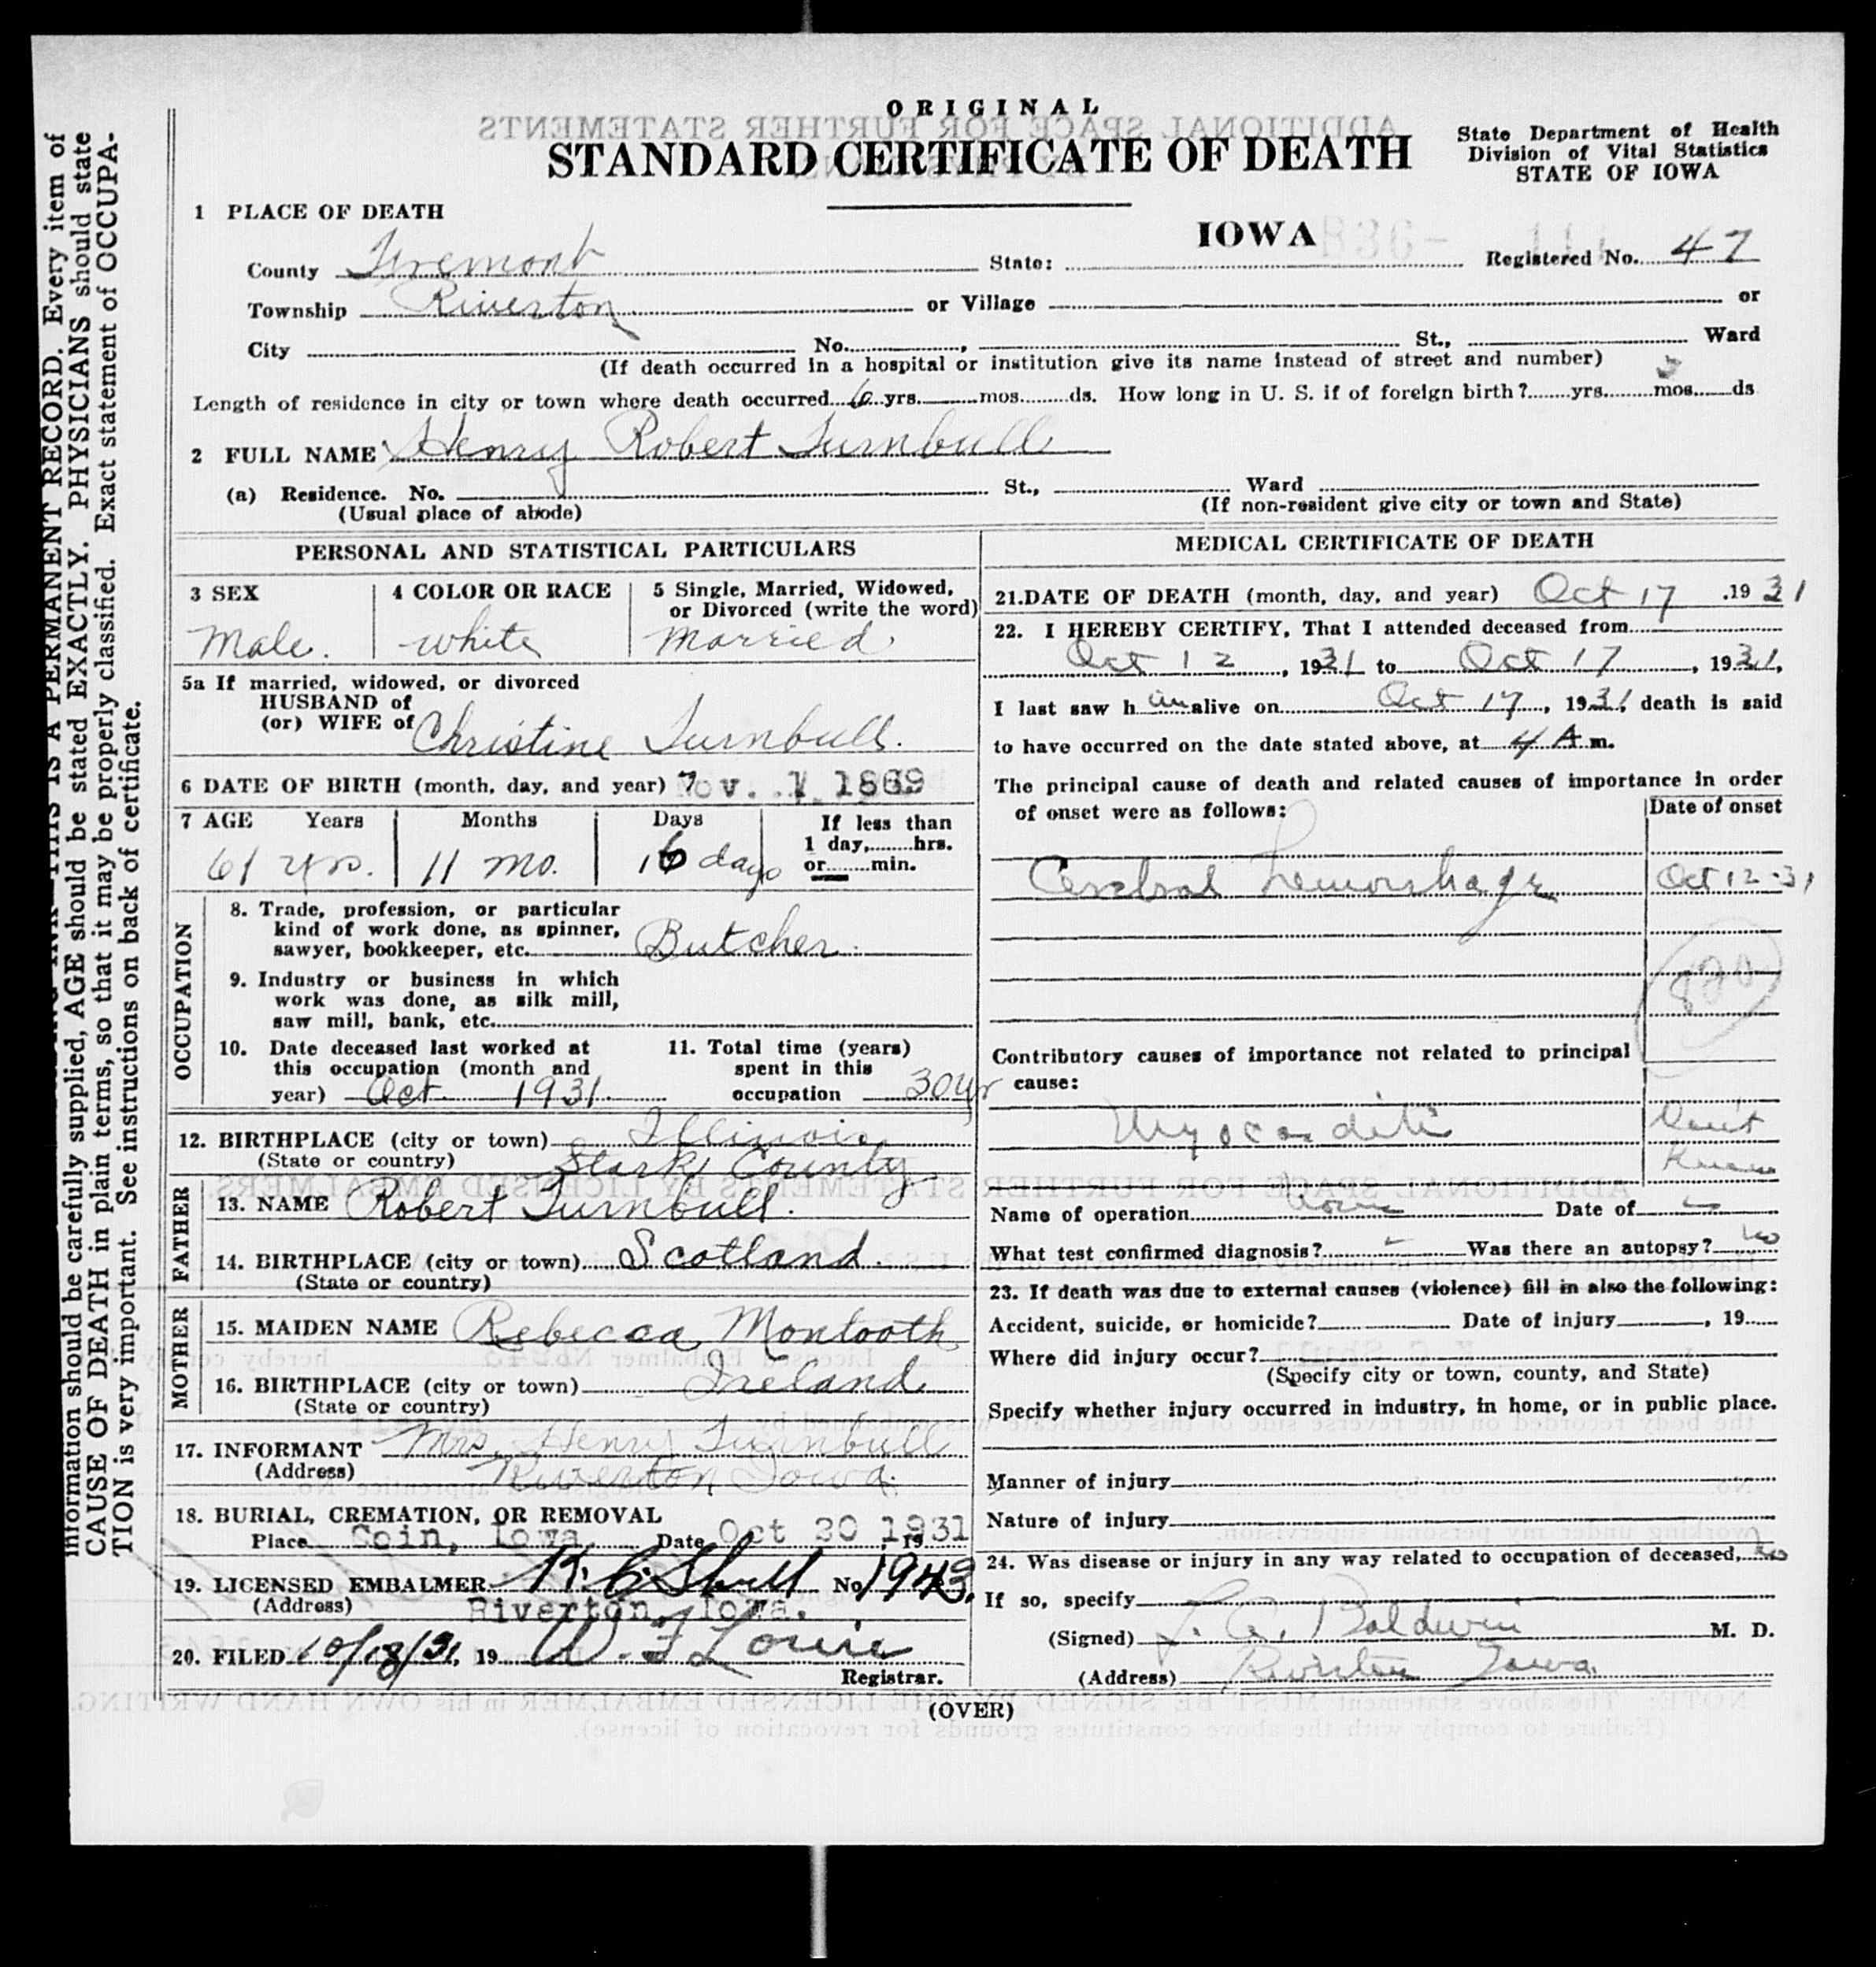 ORIGINAL
STANDARD CERTIFICATE OF DEATH
State Department of Health
Division of Vital Statistics
STATE OF IOWA
1 PLACE OF DEATH
IOWA
County Fremont State: Registered No. 47
Township Riverton or Village or
City No. , St., Ward
(If death occurred in a hospital or institution give its name instead of street and number)
Length of residence in city or town where death occurred 6 yrs. mos. ds. How long in U. S. if of foreign birth? yrs. mos. ds
2 FULL NAME Henry Robert Turnbull
(a) Residence. No. St., Ward
(Usual place of abode) (If non-resident give city or town and State)
PERSONAL AND STATISTICAL PARTICULARS
3 SEX 4 COLOR OR RACE 5 Single, Married, Widowed,
or Divorced (write the word)
Male. White Married
5a If married, widowed, or divorced
HUSBAND of
(or) WIFE of Christine Turnbull.
6 DATE OF BIRTH (month, day, and year) Nov. 1 1869
7 AGE Years Months Days If less than
1 day, hrs.
or min.
61 yrs. 11 mo. 16 days
OCCUPATION
8. Trade, profession, or particular
kind of work done, as spinner,
sawyer, bookkeeper, etc. Butcher.
9. Industry or business in which
work was done, as silk mill,
saw mill, bank, etc.
10. Date deceased last worked at 11. Total time (years)
this occupation (month and spent in this
year) Oct. 1931. occupation 30 yr
12. BIRTHPLACE (city or town) Illinois
(State or country) Stark County
FATHER
13. NAME Robert Turnbull.
14. BIRTHPLACE (city or town) Scotland.
(State or country)
MOTHER
15. MAIDEN NAME Rebecca Montooth
16. BIRTHPLACE (city or town) Ireland
(State or country)
17. INFORMANT Mrs. Henry Turnbull
(Address) Riverton Iowa.
18. BURIAL, CREMATION, OR REMOVAL
Place Coin, Iowa Date Oct 20 1931 19
19. LICENSED EMBALMER K. C. Shull No 1943.
(Address) Riverton, Iowa.
20. FILED 10/18/31, 19 W. F. Lourie
Registrar.
MEDICAL CERTIFICATE OF DEATH
21. DATE OF DEATH (month, day, and year) Oct 17 , 1931
22. I HEREBY CERTIFY, That I attended deceased from
Oct 12 , 1931 to Oct 17 , 1931,
I last saw h im alive on Oct 17, 1931, death is said
to have occurred on the date stated above, at 4 A m.
The principal cause of death and related causes of importance in order
of onset were as follows: Date of onset
Cerebral hemorrhage Oct 12-31
Contributory causes of importance not related to principal
cause:
Myocarditis Don't
Know
Name of operation None Date of
What test confirmed diagnosis? Was there an autopsy? No
23. If death was due to external causes (violence) fill in also the following:
Accident, suicide, or homicide? Date of injury , 19
Where did injury occur?
(Specify city or town, county, and State)
Specify whether injury occurred in industry, in home, or in public place.
Manner of injury
Nature of injury
24. Was disease or injury in any way related to occupation of deceased, No
If so, specify
(Signed) Baldwin M. D.
(Address) Riverton Iowa.
(OVER)
information should be carefully supplied, AGE should be stated EXACTLY. PHYSICIANS should state
CAUSE OF DEATH in plain terms, so that it may be properly classified. Exact statement of OCCUPA-
TION is very important. See instructions on back of certificate.
THIS IS A PERMANENT RECORD. Every item of